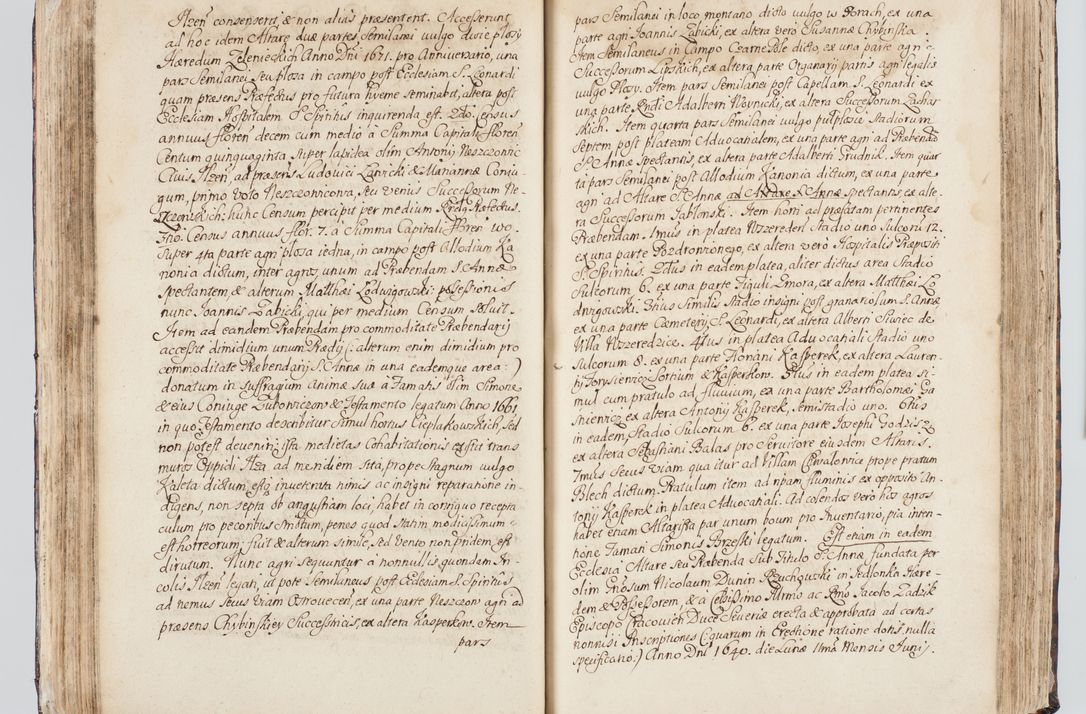 Ilzen consenserit, & non alius præsentent. Accesserunt
ad hoc idem Altare duæ partes semilanei vulgo dwie płosy
Hæredum Zelenieckich Anno Dni 1671. pro Anniversario, una
pars Semilanei seu płosa in campo post Ecclesiam S. Leonardi
quam præsens Præfectus pro futura hyeme seminabit, altera post
Ecclesiam Hospitalem S. Spiritus inquirenda est. 2do. Census
annuus floren decem cum medio a Summa Capitali floren
Centum quinquaginta super lapidea olim Antonij Neszczonic
Civis Ilzen, ad præsens Ludovici Zabicki & Mariannæ Coniu-
gum, primo voto Neszczonicowa, seu venius Successorum Ne-
szczonskich: hunc Censum percipit per medium Præfectus.
3tio. Census annuus flor. 7. a Summa Capitali floren 100.
super sta parte agri płosa iedna, in campo post Allodium Ka
nonia dictum, inter agros, unum ad Præbendam S. Annæ
spectantem, & alterum Matthæi Lodwigowski possessionis
nunc Joannis Zabicki, qui per medium Censum solvit.
Item ad eandem Præbendam pro commoditate Præbendarij
accessit dimidium unum Prædij (: alterum enim dimidium pro
commoditate Præbendarij S. Annæ in una eademque area :)
donatum in suffragium animæ suæ a Famatis olim Simone
& eius Coniuge Zuboniczow & Testamento legatum Anno 1661
in quo Testamento describitur simul hortus Cieplakowskich, sed
non potest deveniri, ista medietas Cohabitationis existit trans
muros Oppidi Ilza ad meridiem sita, prope stagnum vulgo
Kaleta dictum, estq inveterata nimis ac insigni reparatione in-
digens, non septa ob angustiam loci, habet in contiguo recepta
culum pro pecoribus structum, penes quod statim modicissimum
est horreorum, fuit & alterum simile, sed vento non pridem, est
dirutum. Nunc agri sequuntur a nonnullis quondam In-
colis Ilzen legati, ut pote Semilaneus post Ecclesiam S. Spiritus
ad nemus secus viam Ostrovecen, ex una parte Neszczon agri ad
præsens Chybinskiey Successricis, ex altera Kasperkow. Item
pars
pars Semilanei in loco montano dicto vulgo w Gorach, ex una
parte agri Joannis Zabicki, ex altera vero Susannæ Chybinska.
Item Semilaneus in Campo Czarne Pole dicto, ex una parte agri
Successorum Lipskich, ex altera parte Organarij partis agri legalis
vulgo Płosy. Item pars Semilanei post Capellam S. Leonardi ex
una parte Rndi Adalberti Nownicki, ex altera Successorum Zachar
skich. Item quarta pars Semilanei vulgo pułpłosie stadiorum
septem, post plateam Advocatialem, ex una parte agri ad Præbendæ
S. Annæ spectantis, ex altera parte Adalberti Trudnik. Item quar
ta pars Semilanei post Allodium Kanonia dictum, ex una parte
agri ad Altare S. Annæ ad Altare S. Annæ spectantis, ex alte-
ra Successorum Jablonski. Item horti ad præfatam pertinentes
Præbendam. 1mus in platea Wzzereden stadio uno Sulcorū 12.
ex una parte Pozdronionego, ex altera vero Hospitalis Præpositi
S. Spiritus. 2dus in eadem platea, aliter dictus area stadio
Sulcorum 6. ex una parte Figuli Zmora, ex altera Matthæi Lo
dwigowski. 3tius similis stadio insigni post granariolum S. Annæ
ex una parte Cœmeterij S. Leonardi, ex altera Alberti Swiec de
Villa Wzzeredzice. 4tus in platea Advocatiali stadio uno
Sulcorum 8. ex una parte Floriani Kasperek, ex altera Lauren-
tij Torysieniec Sortium & Kasperkow. 5tus in eadem platea si-
mul cum pratulo ad fluvium, ex una parte Bartholomæi Ga
snieniec ex altera Antonij Kasperek, semistadio uno. 6tus
in eadem, stadio Sulcorum 6. ex una parte Josephi Godzisz
ex altera Sebastiani Balas pro servitore eiusdem Altaris.
7mus secus viam qua itur ad Villam Chwałowice prope pratum
Blech dictum. Pratulum item ad ripam fluminis ex opposito An-
tonij Kasperek in platea Advocatiali. Ad colendos vero hos agros
habet etiam Altarista par unum boum pro Inventario, pia inten-
tione Famati Simonis Brzeski legatum. Est etiam in eadem
Ecclesia Altare seu Præbenda sub Titulo S. Annæ fundata per
olim Gnosum Nicolaum Dunin Rzuchowski in Jedlonka Hære-
dem & Possessorem, & a Celsissimo Illrmo ac Rmo Jacobo Zadzik
Episcopo Cracovien Duce Severiæ erecta & approbata ad certas
nonnisi Inscriptiones (: quarum in Erectione ratione dotis nulla
specificatio :) Anno Dni 1640. die Lunæ 11ma Mensis Junij.